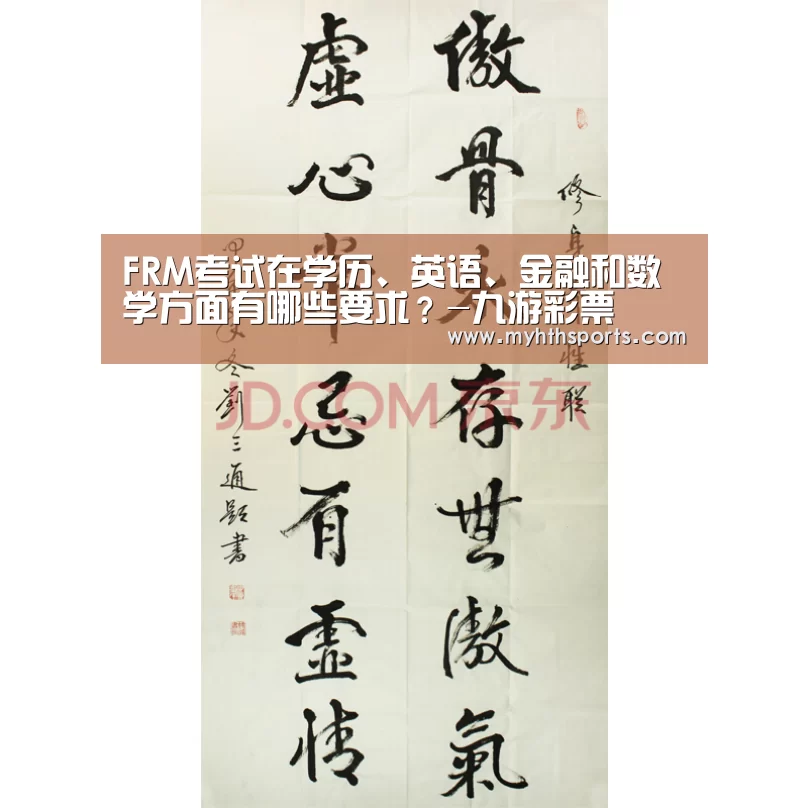 FRM考试在学历、英语、金融和数
学方面有哪些要求？–九游彩票
www.myhthsports.com
JD.COM 京东
修身性联
傲骨存無傲氣
虛心常忌有虛情
冬劉三通題書